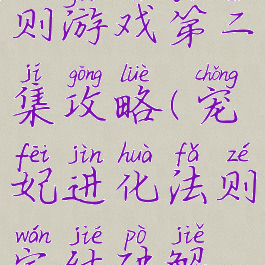 则游戏第二
jí gōng lüè chǒng
集攻略(宠
fēi jìn huà fǎ zé
妃进化法则
wán jié pò jiě
完结破解